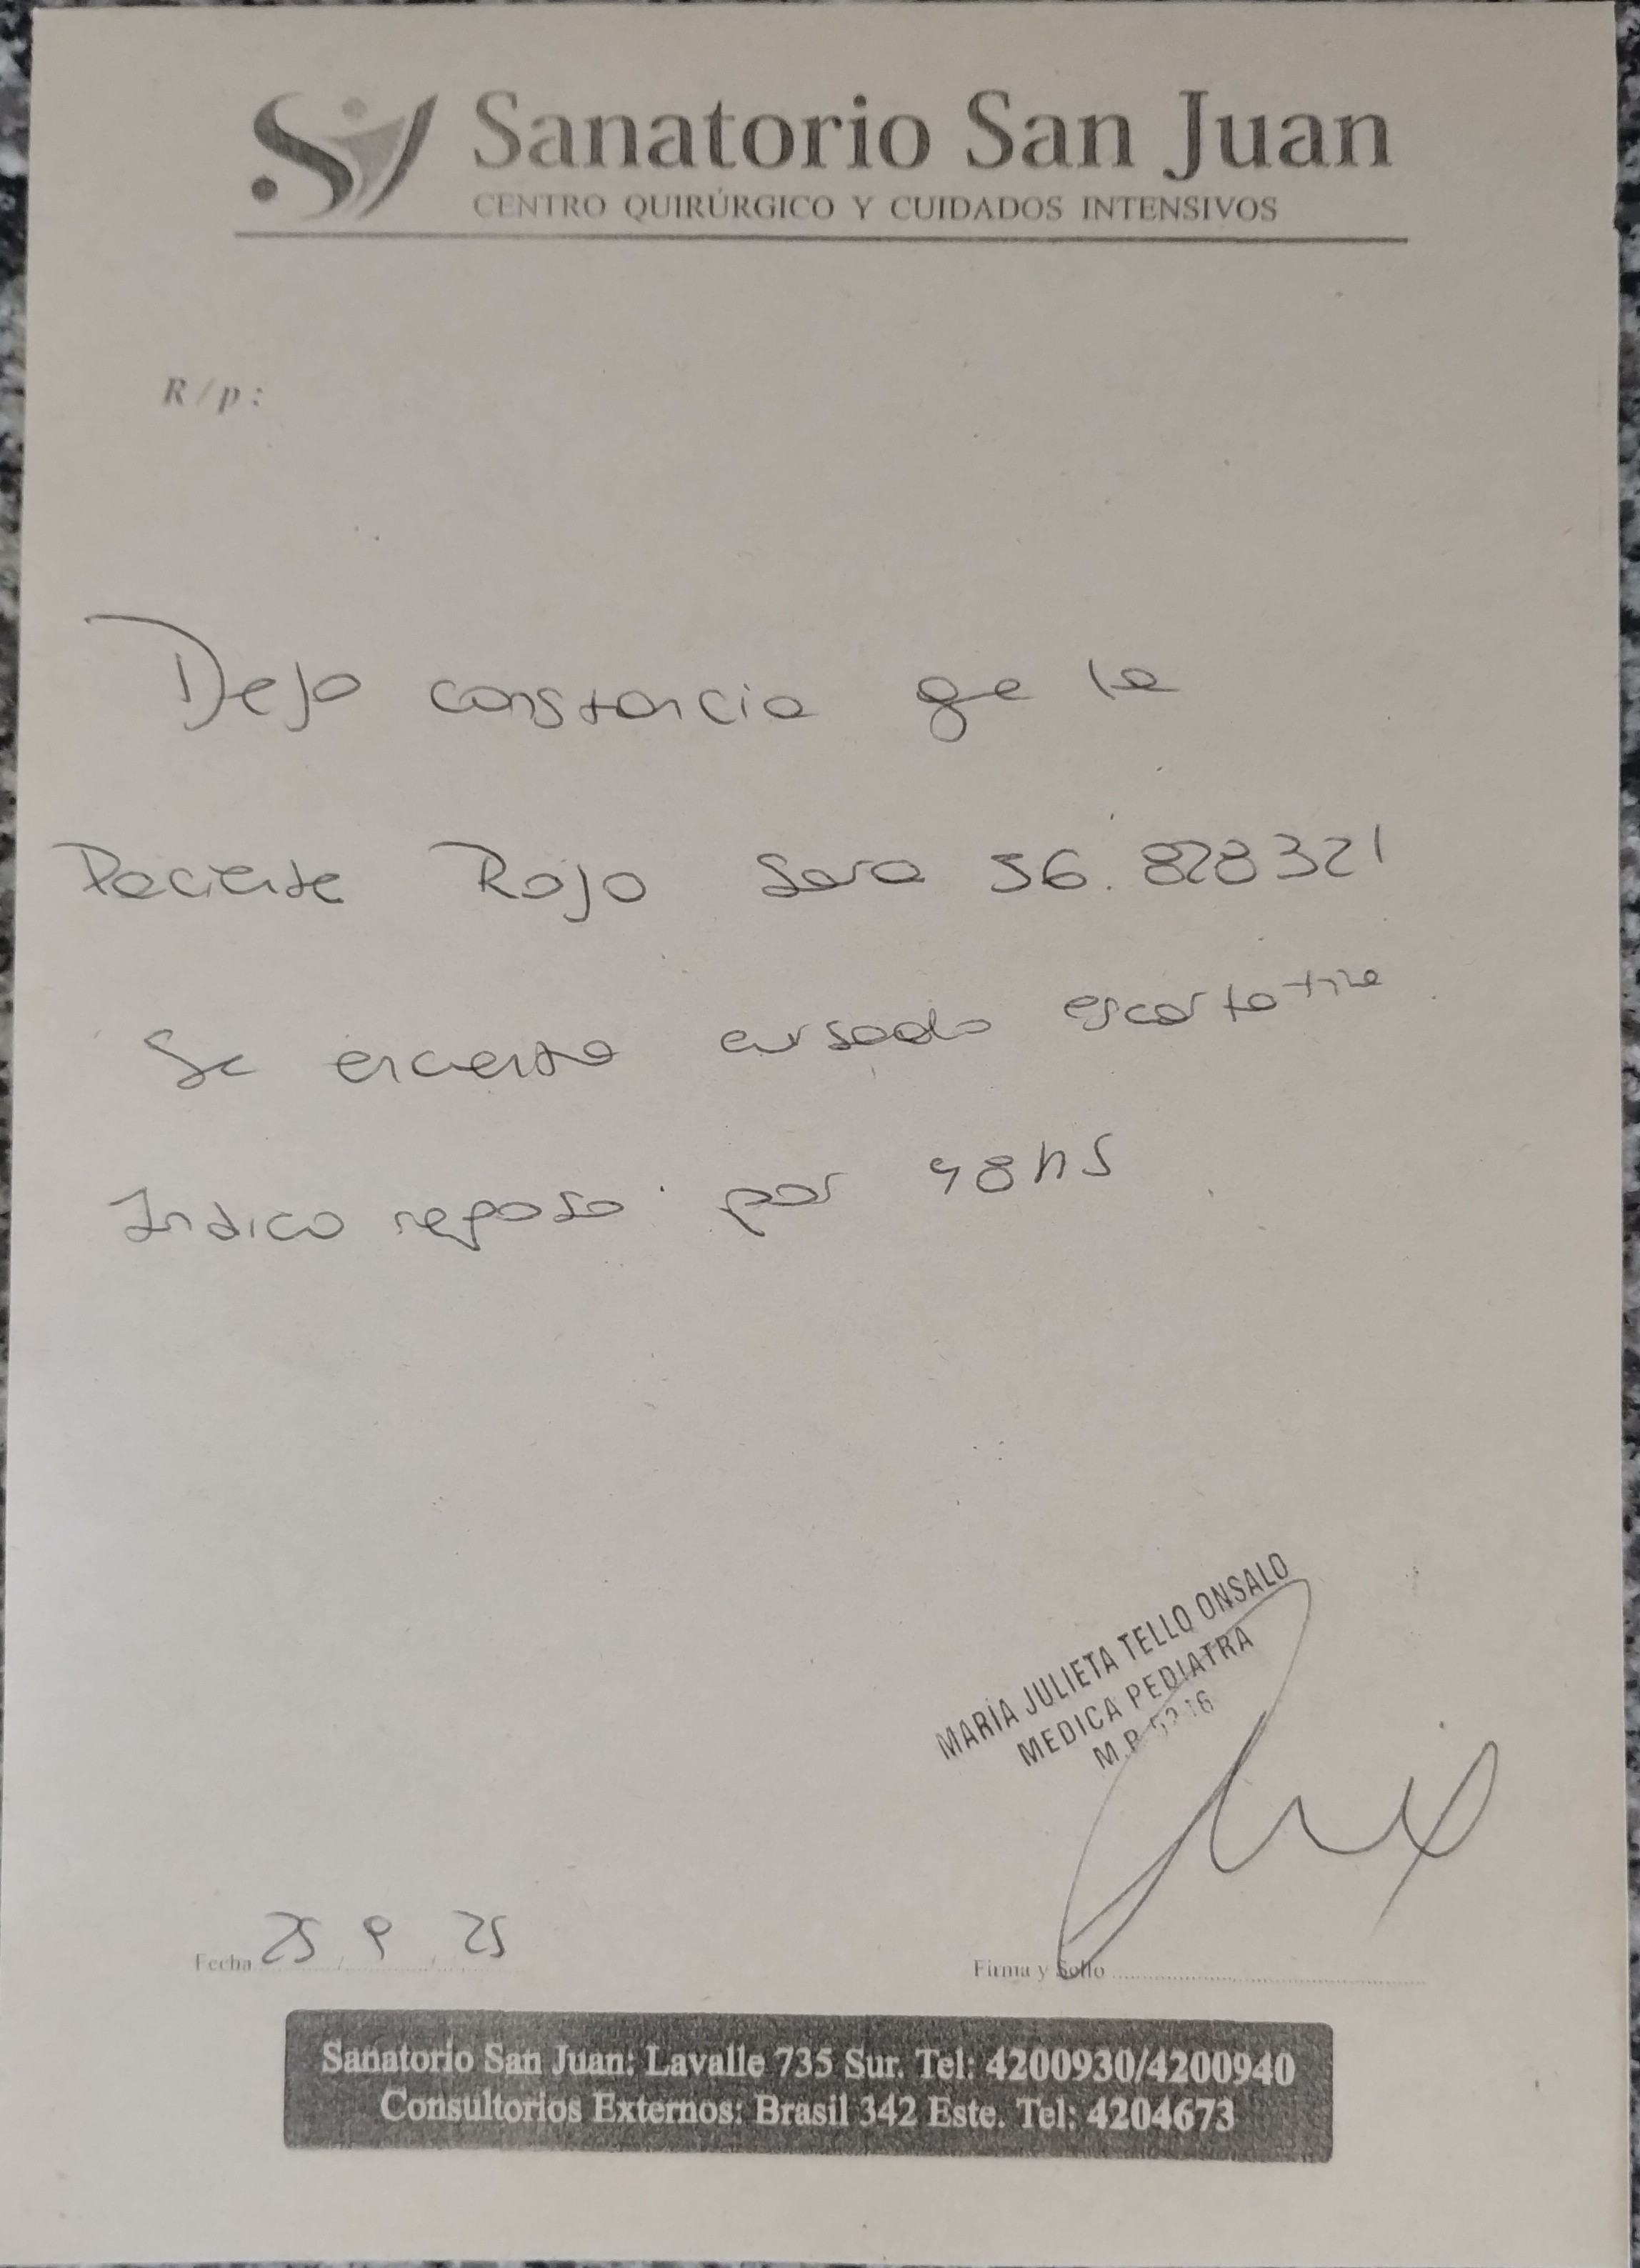 Sanatorio San Juan
CENTRO QUIRÚRGICO Y CUIDADOS INTENSIVOS
R/p:
Dejo constancia qe la
Paciente Rojo Sara 56.828321
Se encuentra cursando escarlatina
Indico reposo por 48hs
MARIA JULIETA TELLO ONSALO
MEDICA PEDIATRA
M.P.
Fecha 25 / 9 / 25
Firma y Sello
Sanatorio San Juan: Lavalle 735 Sur. Tel: 4200930/4200940
Consultorios Externos: Brasil 342 Este. Tel: 4204673